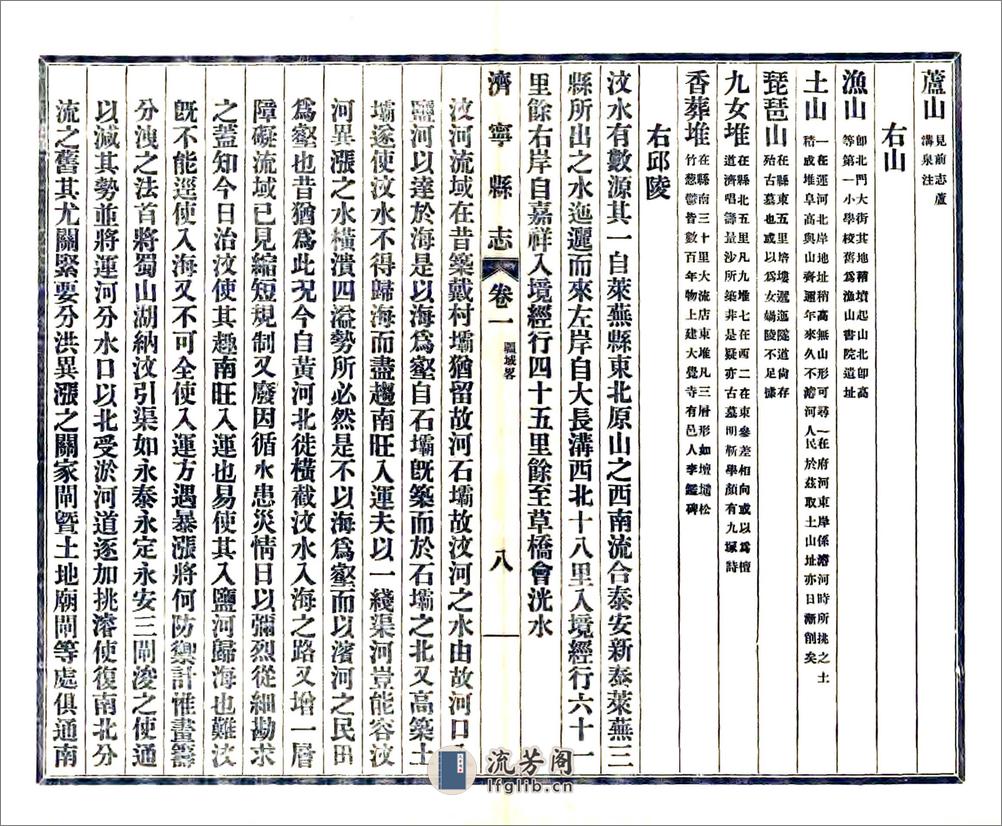 蘆山 見前志蘆
溝泉注
右山
漁山 卽北門大街其地稍墳起山北卽高
等第一小學校舊爲漁山書院遺址
土山 一在運河北岸地址稍高無山形可尋一在府河東岸係濬河時所挑之土
積成堆阜高與山齊邇年來久不濬河人民於茲取土山址亦日漸削矣
琵琶山 在縣東五里培塿邐迤隧道尙存
殆古墓也或以爲女媧陵不足據
九女堆 在縣北五里凡九堆七在西二在東參差相向或以爲檀
道濟唱籌量沙所築非是疑亦古墓明靳學顏有九塚詩
香葬堆 在縣南三十里大流店東堆凡三層形如壇壝松
竹葱鬱皆數百年物上建大覺寺有邑人李鑑碑
右邱陵
汶水有數源其一自萊蕪縣東北原山之西南流合泰安新泰萊蕪三
縣所出之水迤邐而來左岸自大長溝西北十八里入境經行六十一
里餘右岸自嘉祥入境經行四十五里餘至草橋會洸水
濟寧縣志 卷一 疆域畧 八
汶河流域在昔築戴村壩猶留故河石壩故汶河之水由故河口入
鹽河以達於海是以海爲壑自石壩旣築而於石壩之北又高築土
壩遂使汶水不得歸海而盡趨南旺入運夫以一綫渠河豈能容汶
河異漲之水橫潰四溢勢所必然是不以海爲壑而以濱河之民田
爲壑也昔猶爲此況今自黃河北徙橫截汶水入海之路又增一層
障礙流域已見縮短規制又廢因循水患災情日以彌烈從細勘求
之蓋知今日治汶使其趣南旺入運也易使其入鹽河歸海也難汶
旣不能逕使入海又不可全使入運方遇暴漲將何防禦計惟畫籌
分洩之法首將蜀山湖納汶引渠如永泰永定永安三閘浚之使通
以減其勢並將運河分水口以北受淤河道逐加挑濬使復南北分
流之舊其尤關緊要分洪異漲之關家閘暨土地廟閘等處俱通南
流芳阁
lfglib.cn